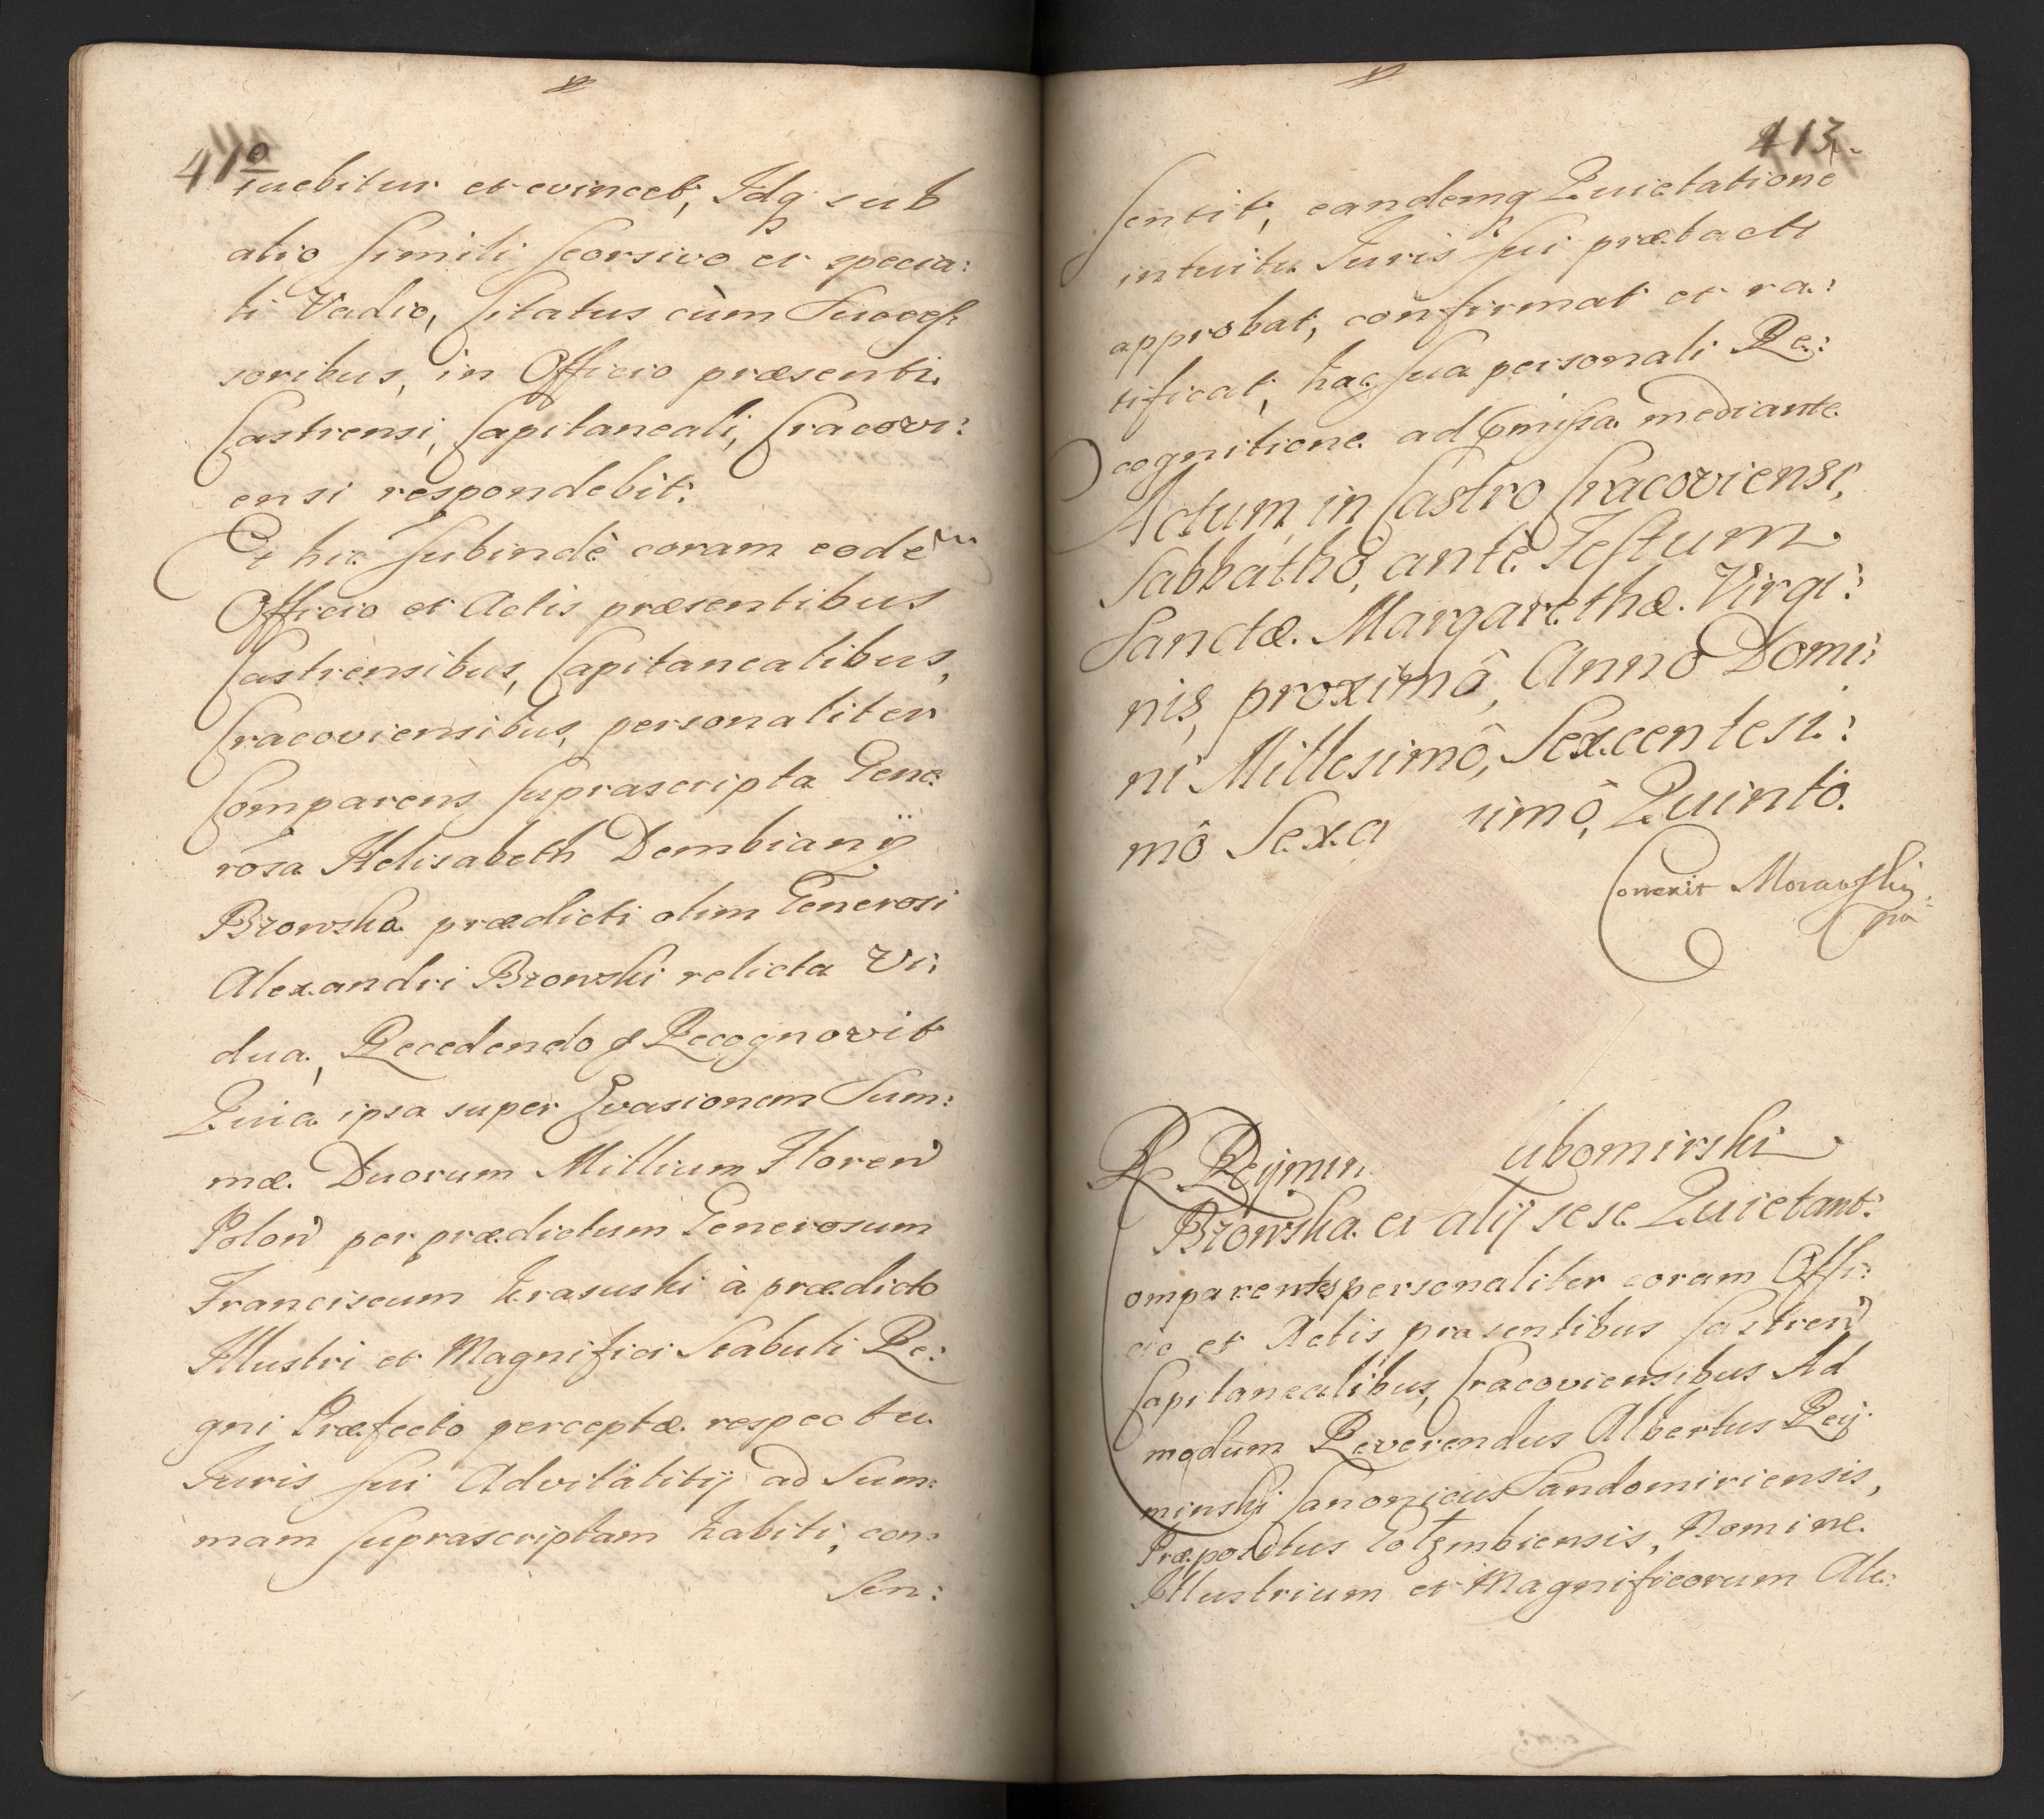 410
tuebitur et evincet, Idq sub
alio simili seorsivo et specia:
li Vadio, Citatus cùm Succes:
soribus, in Officio præsenti
Castrensi, Capitaneali, Cracovi:
ensi respondebit:
Et hic subindè coram eodem
Officio et Actis præsentibus
Castrensibus, Capitanealibus,
Cracoviensibus, personaliter
Comparens suprascripta Gene:
rosa Helisabeth Dembianÿ
Bzowska prædicti olim Generosi
Alexandri Bzowski relicta Vi:
dua, Recedendo Recognovit
Quia ipsa super Evasionem Sum:
mæ Duorum Millium Floren
Polon per prædictum Generosum
Franciscum Krasuski à prædicto
Illustri et Magnifici Stabuli Re:
gni Præfecto perceptæ respectu
Iuris sui Advitalitij ad Sum:
mam suprascriptam habiti, con:
sen:
413
sentit, eandemq Quietatione
intuitu Iuris sui prætacti
approbat, confirmat et ra:
tificat, hac sua personali Re:
cognitione ad præmissa mediante
Actum in Castro Cracoviensi,
Sabbathô, antè Festum
Sanctæ Margarethæ Virgi:
nis, proximô, Annô Domi:
ni Millesimô, Sexcentesi:
mô Sexa simô, Quintô.
Conexit Morawski
mp
R Reÿmin ubomirski
Bzowska et alij sese Quietant:
omparentes personaliter coram Offi:
cio et Actis præsentibus Castren
Capitanealibus, Cracoviensibus Ad
modum Reverendus Albertus Reÿ:
minski Canonicus Sandomiriensis,
Præpositus Golęmbiensis, Nomine
Illustrium et Magnificorum Ale: